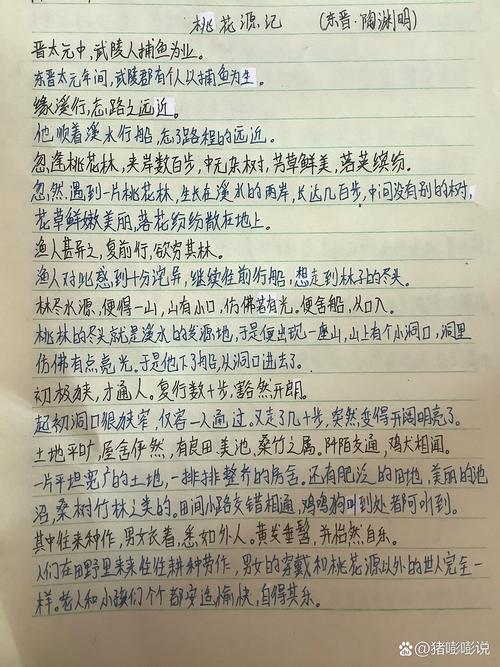 桃花源记 (东晋·陶渊明)
晋太元中，武陵人捕鱼为业。
东晋太元年间，武陵郡有个人以捕鱼为生。
缘溪行，忘路之远近。
他顺着溪水行船，忘了路程的远近。
忽逢桃花林，夹岸数百步，中无杂树，芳草鲜美，落英缤纷。
忽然遇到一片桃花林，生长在溪水的两岸，长达几百步，中间没有别的树，
花草鲜嫩美丽，落花纷纷散在地上。
渔人甚异之，复前行，欲穷其林。
渔人对此感到十分诧异，继续往前行船，想走到林子的尽头。
林尽水源，便得一山，山有小口，仿佛若有光。便舍船，从口入。
桃林的尽头就是溪水的发源地，于是便出现一座山，山上有个小洞口，洞里
仿佛有点亮光。于是他下了船，从洞口进去了。
初极狭，才通人。复行数十步，豁然开朗。
起初洞口很狭窄，仅容一人通过。又走了几十步，突然变得开阔明亮了。
土地平旷，屋舍俨然，有良田美池，桑竹之属。阡陌交通，鸡犬相闻。
一片平坦宽广的土地，一排排整齐的房舍。还有肥沃的田地，美丽的池
沼，桑树竹林之类的。田间小路交错相通，鸡鸣狗叫到处都可听到。
其中往来种作，男女衣着，悉如外人。黄发垂髫，并怡然自乐。
人们在田野里来来往往耕种劳作，男女的穿戴和桃花源以外的世人完全一
样。老人和小孩们个个都安适愉快，自得其乐。
猪嘭嘭说